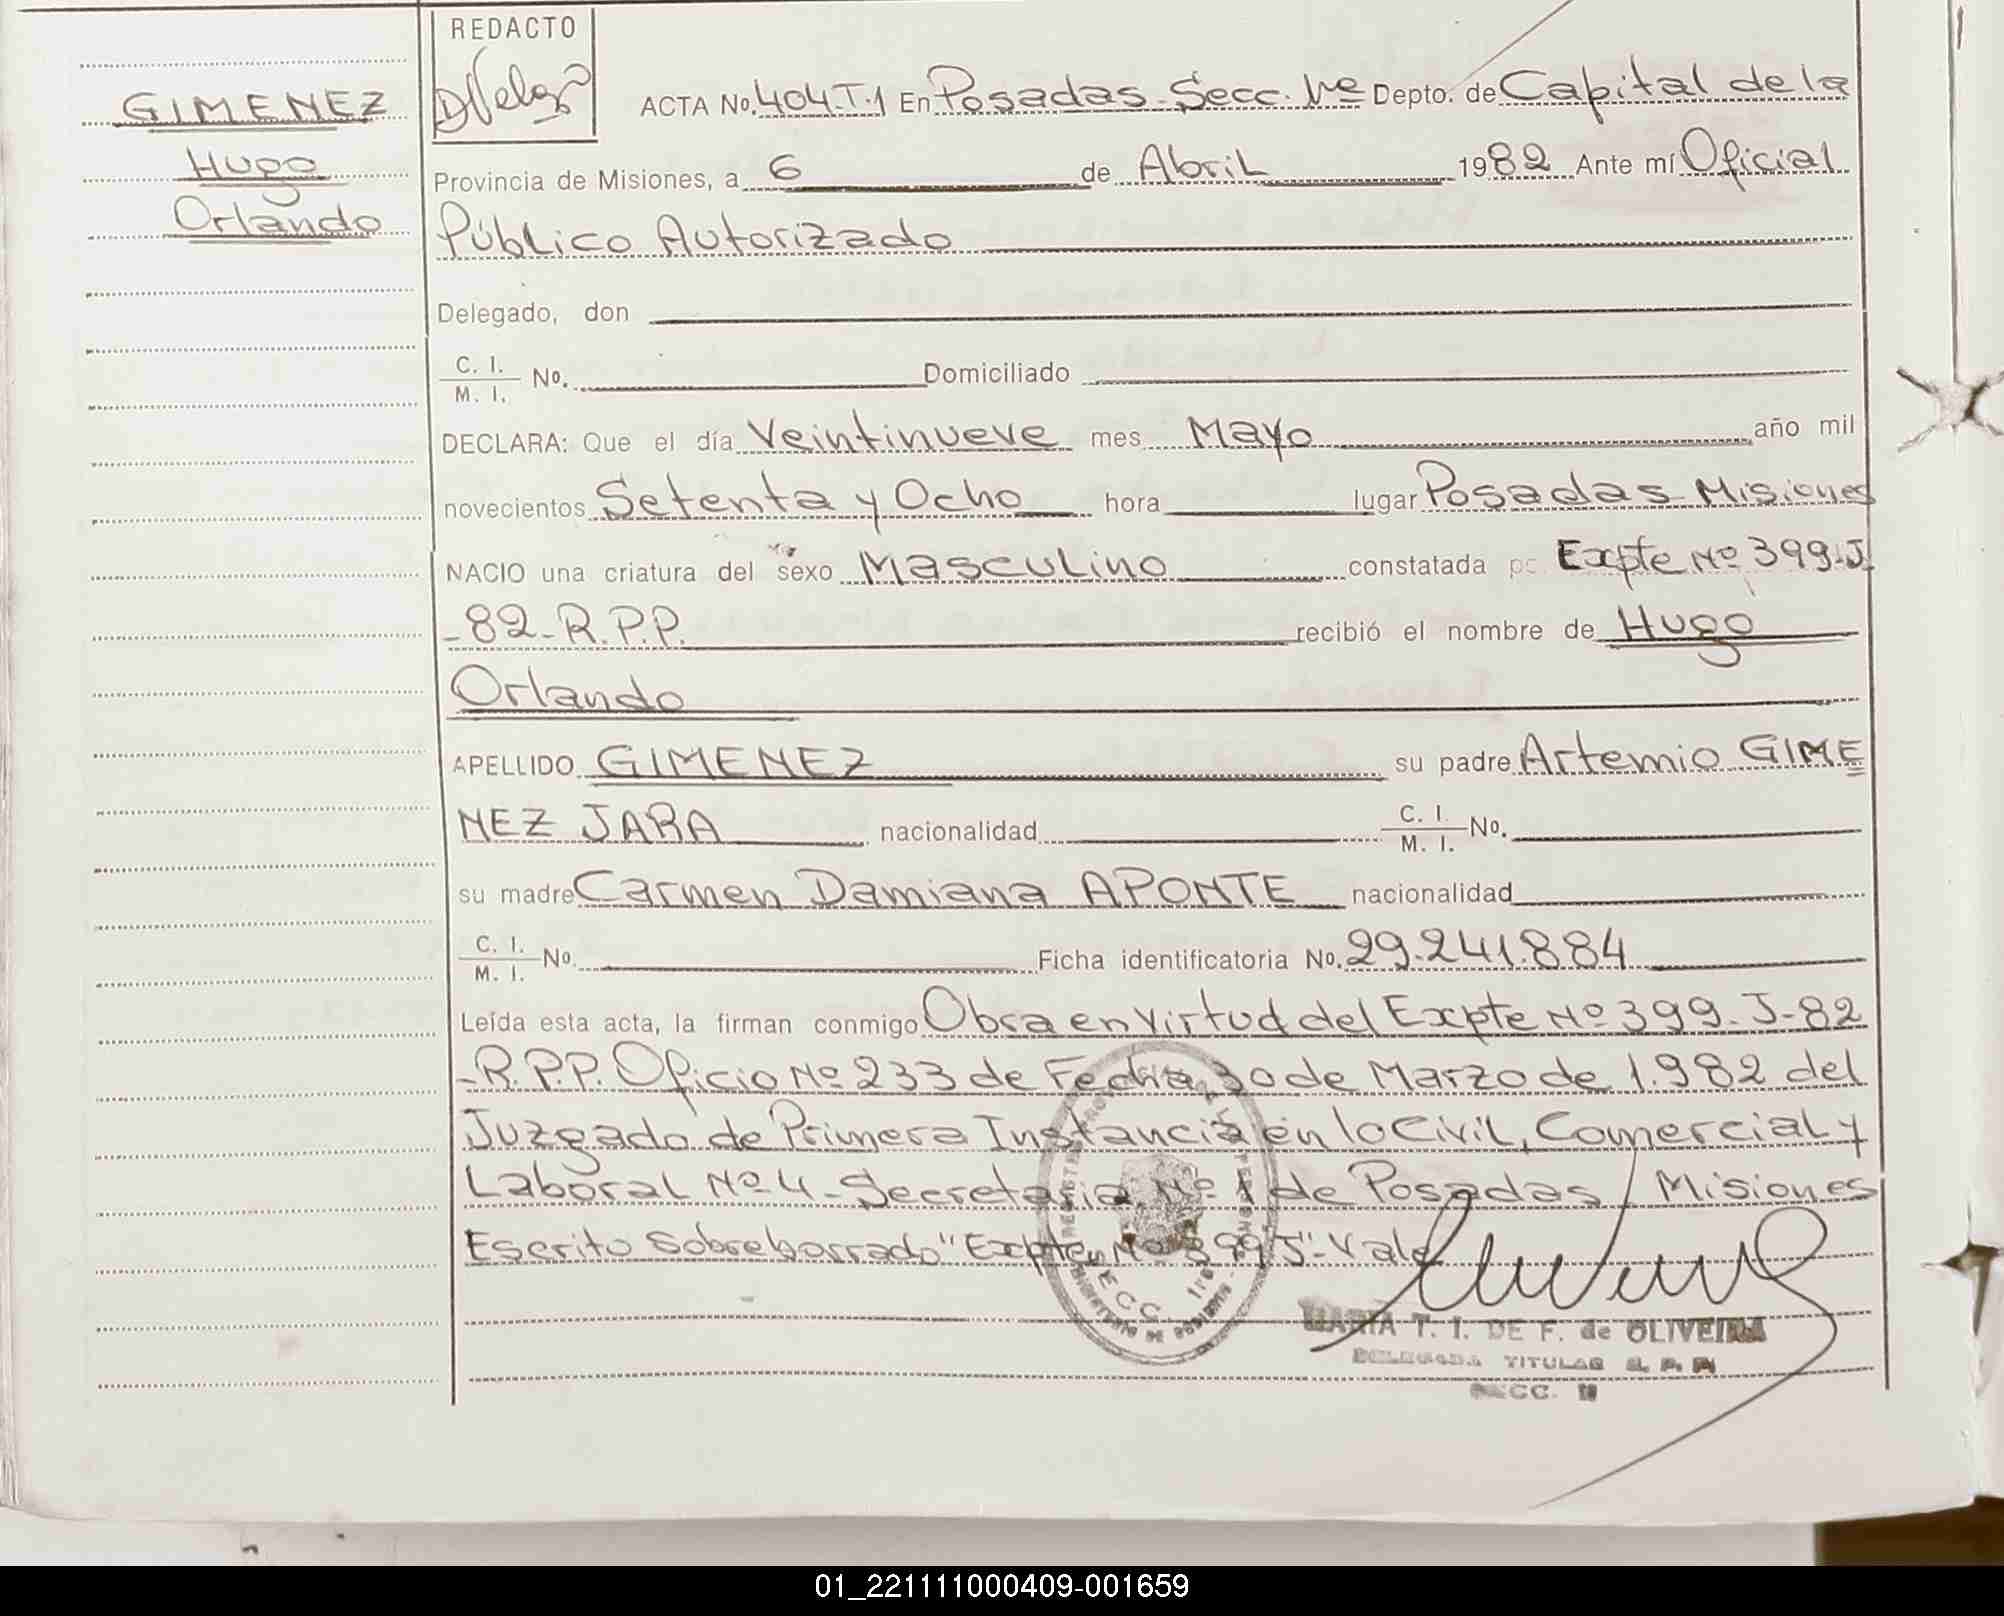 REDACTO
GIMENEZ
Hugo
Orlando
ACTA No. 404.T.1 En Posadas - Secc. 1ra Depto. de Capital de la
Provincia de Misiones, a 6 de Abril 1982 Ante mí Oficial
Público Autorizado
Delegado, don
C. I.
M. I. No. Domiciliado
DECLARA: Que el día Veintinueve mes Mayo año mil
novecientos Setenta y Ocho hora lugar Posadas - Misiones
NACIO una criatura del sexo Masculino constatada po Expte Nº 399-J
-82-R.P.P. recibió el nombre de Hugo
Orlando
APELLIDO GIMENEZ su padre Artemio GIME
NEZ JARA nacionalidad C. I.
M. I. No.
su madre Carmen Damiana APONTE nacionalidad
C. I.
M. I. No. Ficha identificatoria No. 29.241.884
Leída esta acta, la firman conmigo Obra en virtud del Expte Nº 399-J-82
-R.P.P. Oficio Nº 233 de Fecha 30 de Marzo de 1.982 del
Juzgado de Primera Instancia en lo Civil, Comercial y
Laboral Nº 4 - Secretaria Nº 1 de Posadas, Misiones
Escrito Sobreborrado "Expte Nº 399 J" - Vale
MARIA T. I. DE F. de OLIVEIRA
DELEGADA TITULAR R. P. P.
SECC. 1ª
01_221111000409-001659